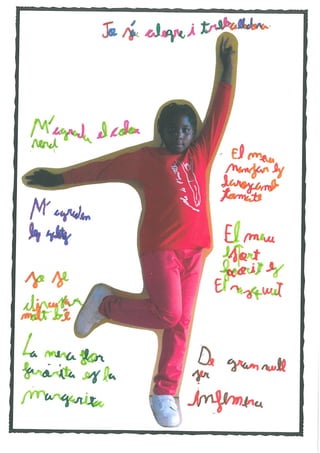 Jo sóc alegre i treballadora
M'agrada el color
verd
M'agraden
Jo se
molt bé
La meva flor
favorita es la
margarita
El meu
menjar es
tomate
El meu
esport
favorit es
El
De gran vull
ser
infermera